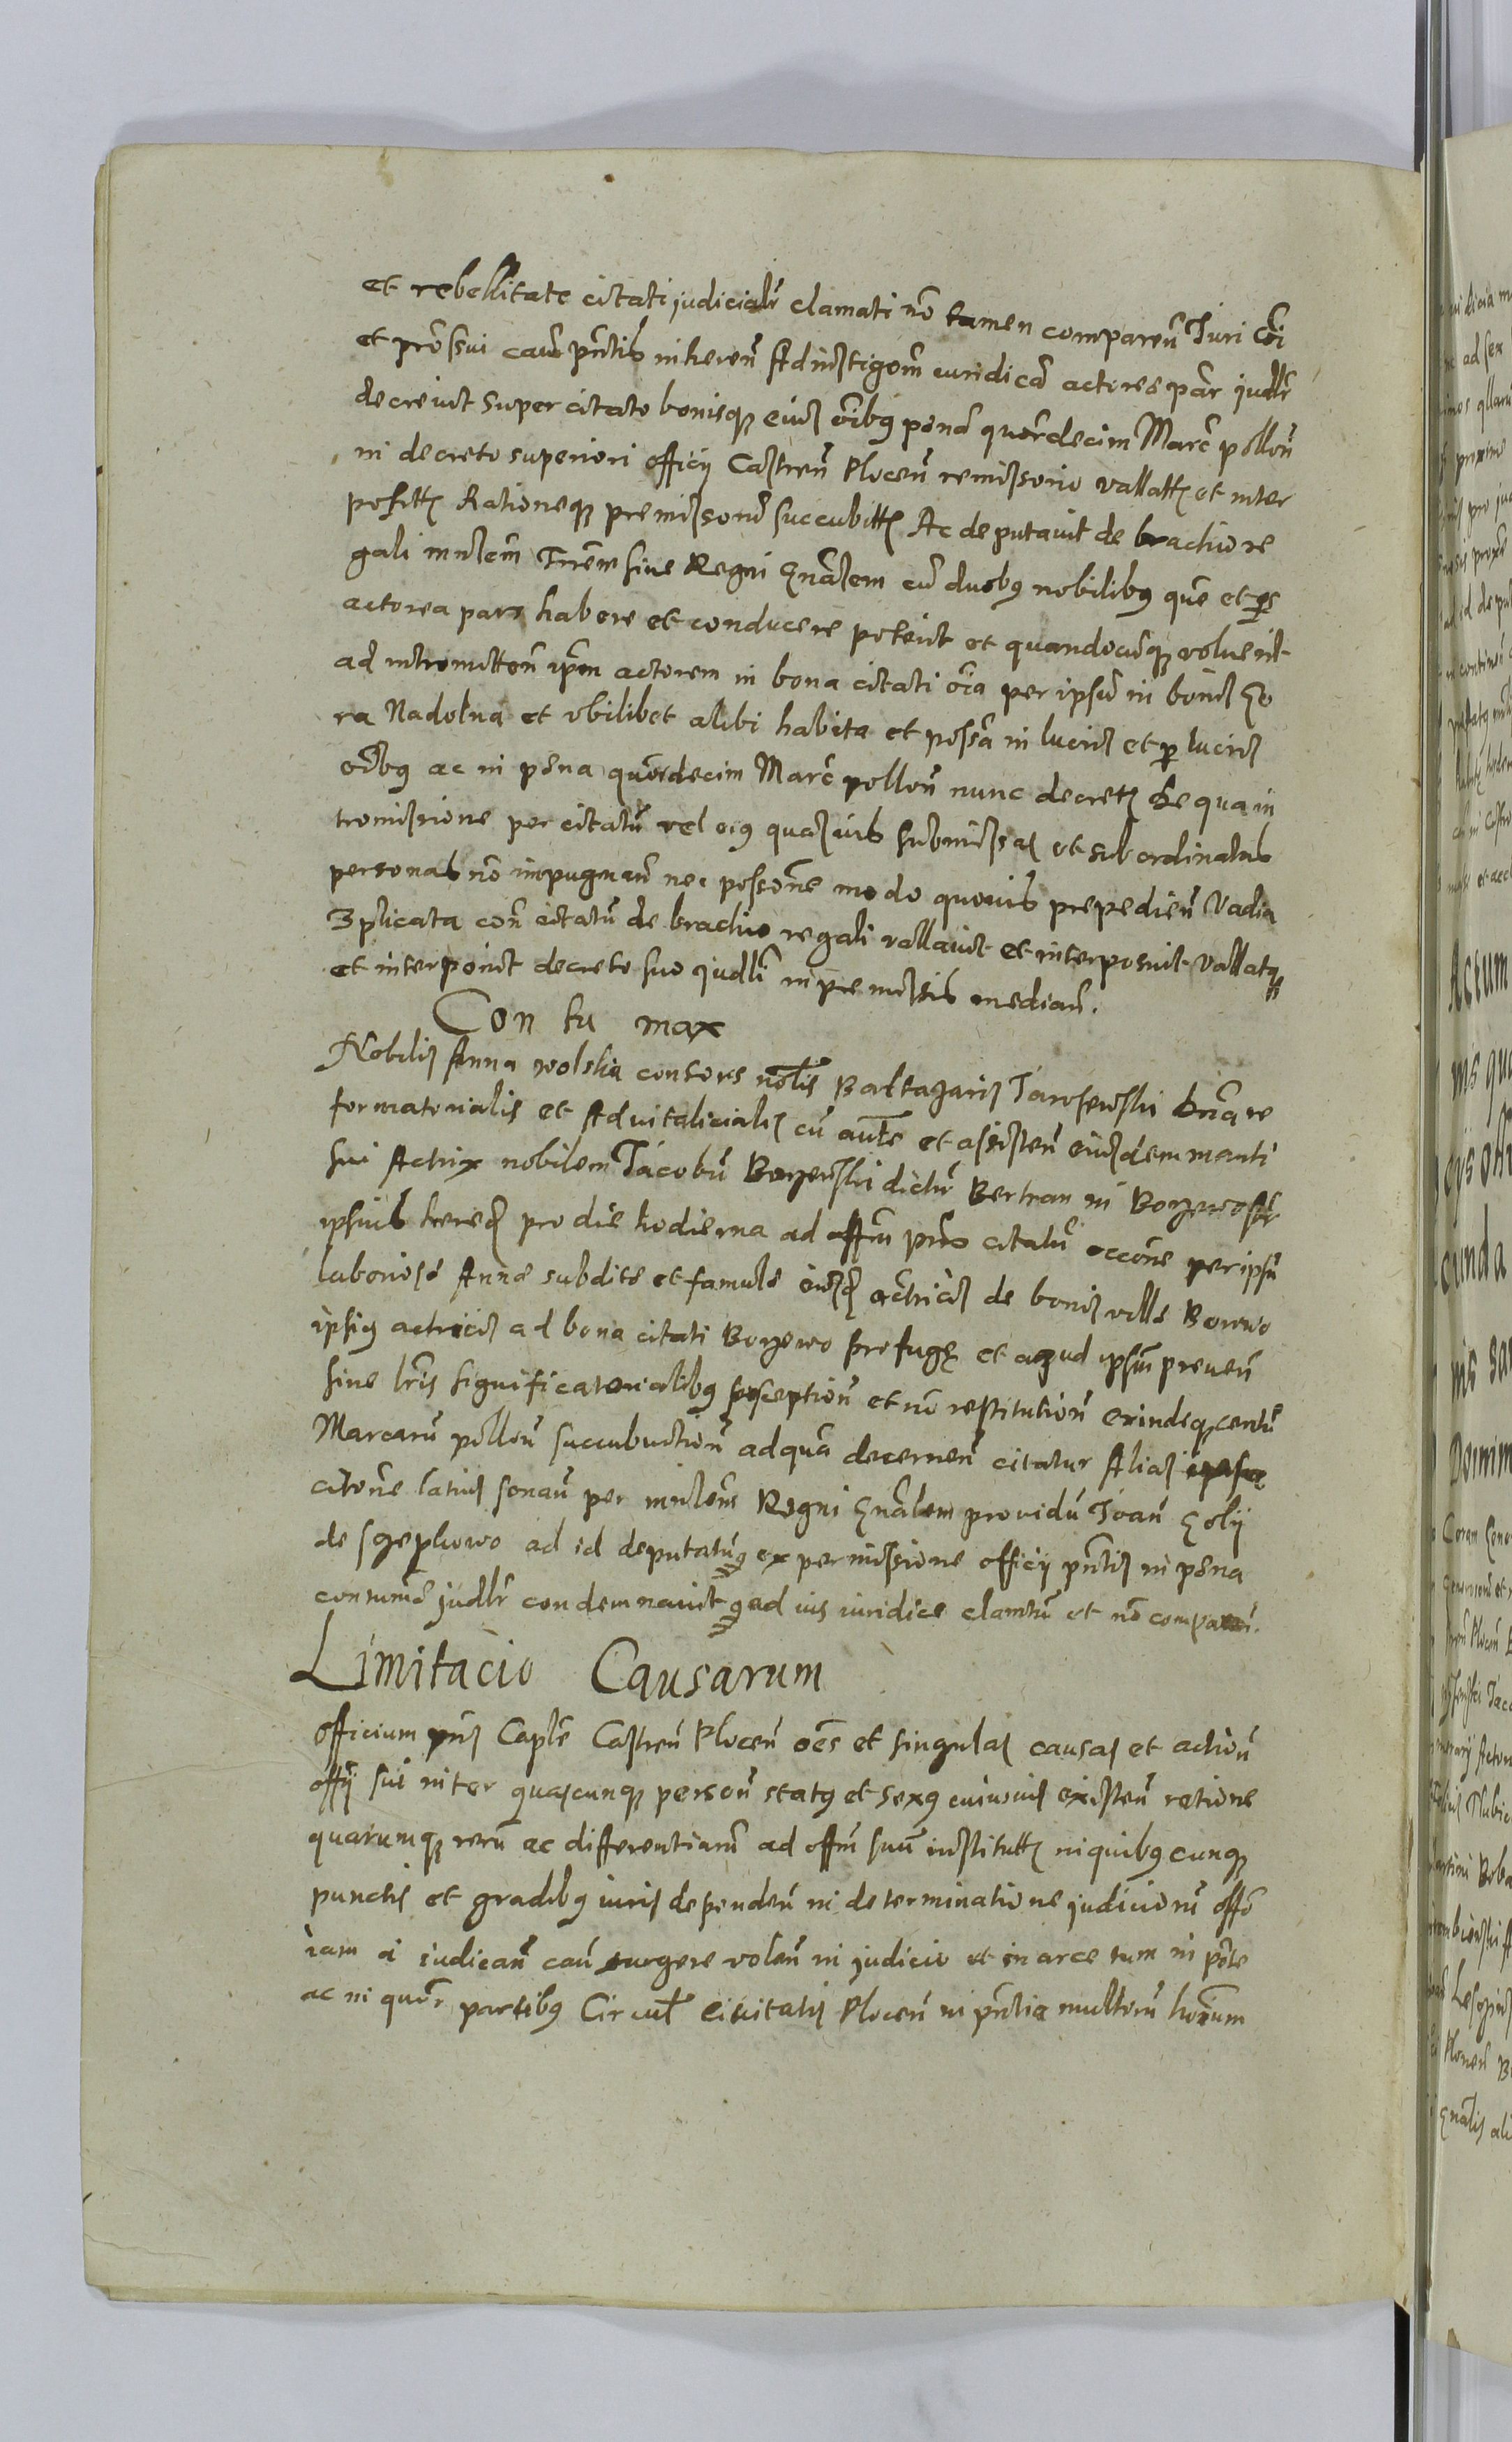 et rebellitate citati judicialr clamati nō tamen comparen̄ Juri cōi
et prōssui caūe pn̄tis inheren̄ Ad instigōem iuridicā actoree par judlr
decreuit super citato bonisq eius oībq penā quordecim Marc̄ pollōn
in decreto superiori officij Castren̄ Plocen̄ remissorio vallatt et inter
positt Rationeq premissorū succubitt Ac deputauit de brachio re
gali mnlem Trem siue Regni Gnālem cū duobq nobilibq que et qs
actorea pars habere et conducere poterit et quandocūq voluerit
ad intromitten̄ ipm actorem in bona citati oīa per ipsū in bonis Go
ra Nadolna et vbilibet alibi habita et possā in lucris et p lucris
oībq ac in pena quordecim Marc̄ pollon̄ nunc decrett De qua in
tromissione per citatū vel eiq quasuis submissas et subordinatas
personas nō impugnan̄ nec possone modo quouis prepedien̄ Vadia
3plicata con̄ citatū de brachio regali vallauit et interposuit Vallatq
et interponit decreto suo judlr in premissis median̄.
Con tu max
Nobilis Anna wolska consors nobilis Baltazaris Jaroszewski bn̄a re
formatorialis et Aduitalicialis cū aute et assisten̄ eiusdem mariti
sui Actrix nobilem Jacobū Bozewski dictū Bertran in Bozewo
ipsius hered pro die hodierna ad offm pns citatū occone per ipsū
laboriose Anne subdite et famule eiusd actricis de bonis ville Borwo
ipsiq actricis ad bona citati Bozewo profuge et apud ipsum preuen̄
sine lris significatorialibq susception̄ et nō restitution̄ exindeq centū
Marcarū pollon̄ succubuition̄ ad quā decernen̄ citatur Alias
citone latius sonan̄ per mnlem Regni Gnālem prouidū Joan̄ Goly
de Szephowo ad id deputatū ex permissione officij pntis in pena
contumā judlr condemnauit ad ius iuridice clamtū et nō comparen̄.
Limitacio Causarum
Officium pns Caple Castren̄ Plocen̄ oēs et singulas causas et action̄
offij sui inter quascunq person̄ statq et sexq cuiusuis existen̄ ratione
quarumq rerū ac differentiarū ad offm suū institutt in quibqcunq
punctis et gradibq iuris dependen̄ in determinatione judiciorū offo
iam a iudican̄ caū surgere volen̄ in judicio et in arce tum in pte
ac in quor partibq Circul ciuitatis Plocen̄ in pn̄tia multorū hoīum